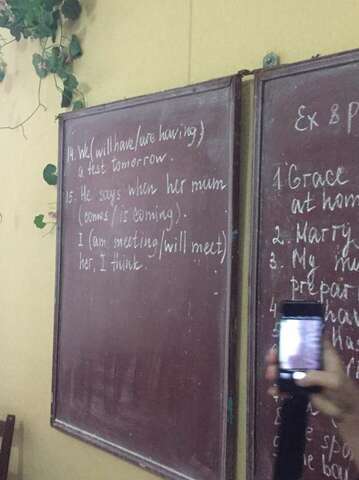 14. We (will have/are having)
a test tomorrow.
15. He says when her mum
(comes/is coming).
I (am meeting/will meet)
her, I think.
Ex 8
1. Grace
at hom
2. Marry
3. My mu
prepar
4.